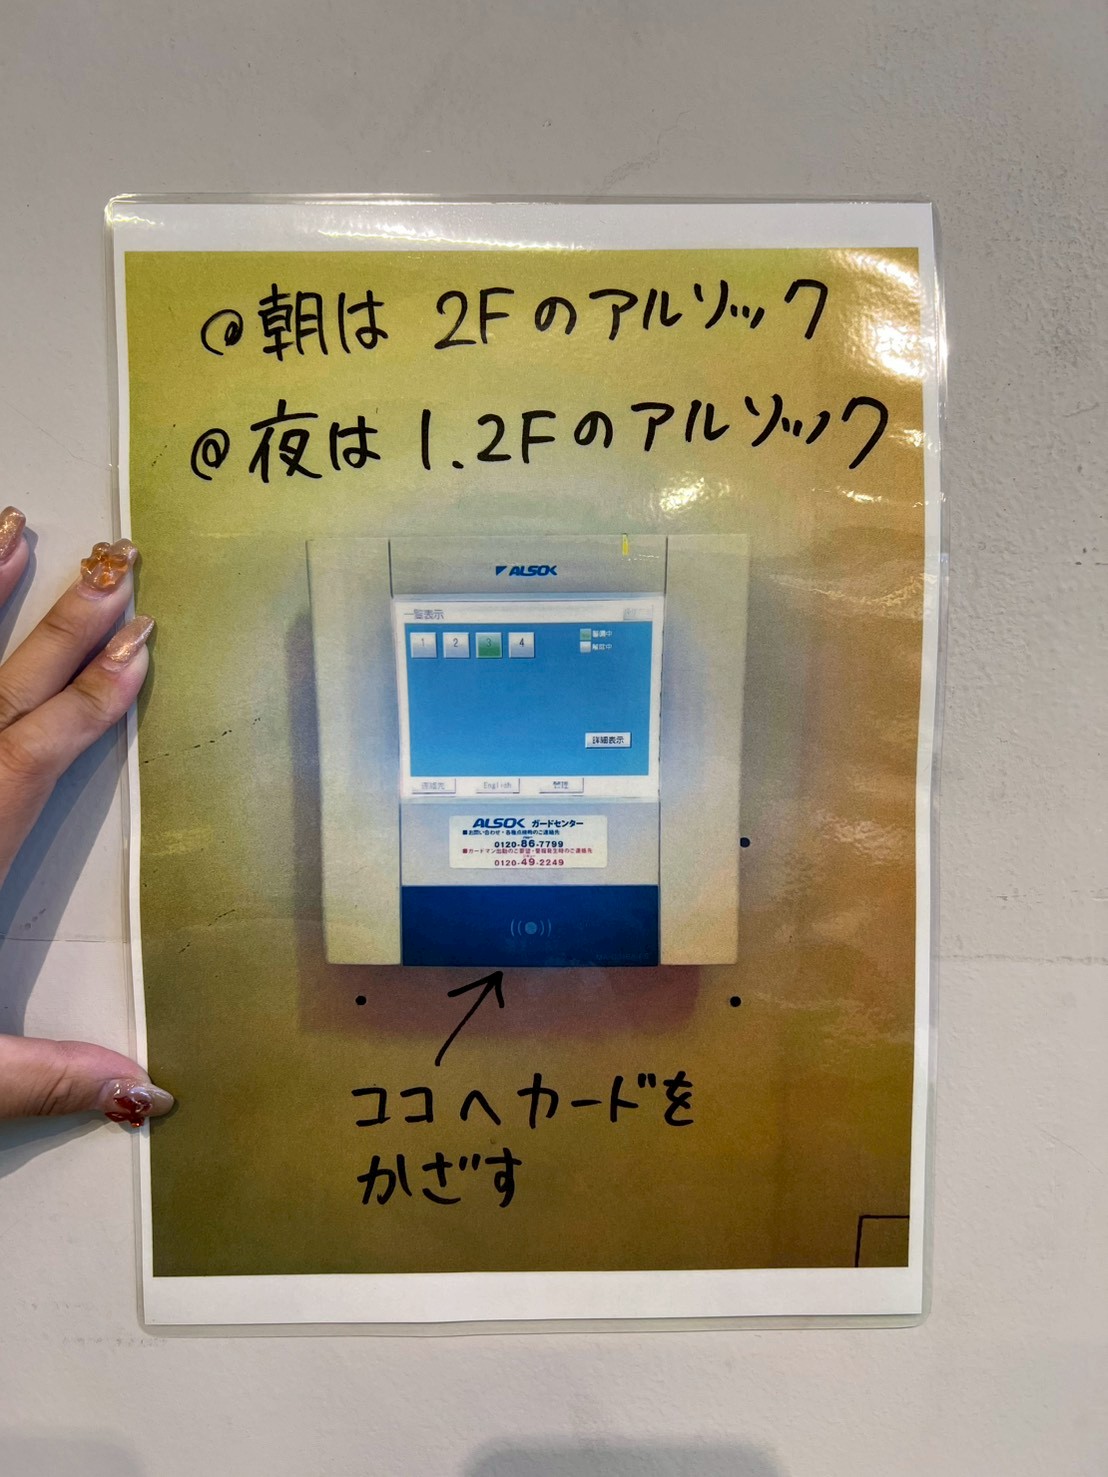 @朝は 2Fのアルソック
@夜は 1.2Fのアルソック
ALSOK
一覧表示
1 2 3 4
警備中
解除中
詳細表示
連絡先 English
ALSOK ガードセンター
■お問い合わせ・各種点検時のご連絡先
0120-86-7799
■ガードマン出動のご要望・警報発生時のご連絡先
0120-49-2249
ココへカードを
かざす